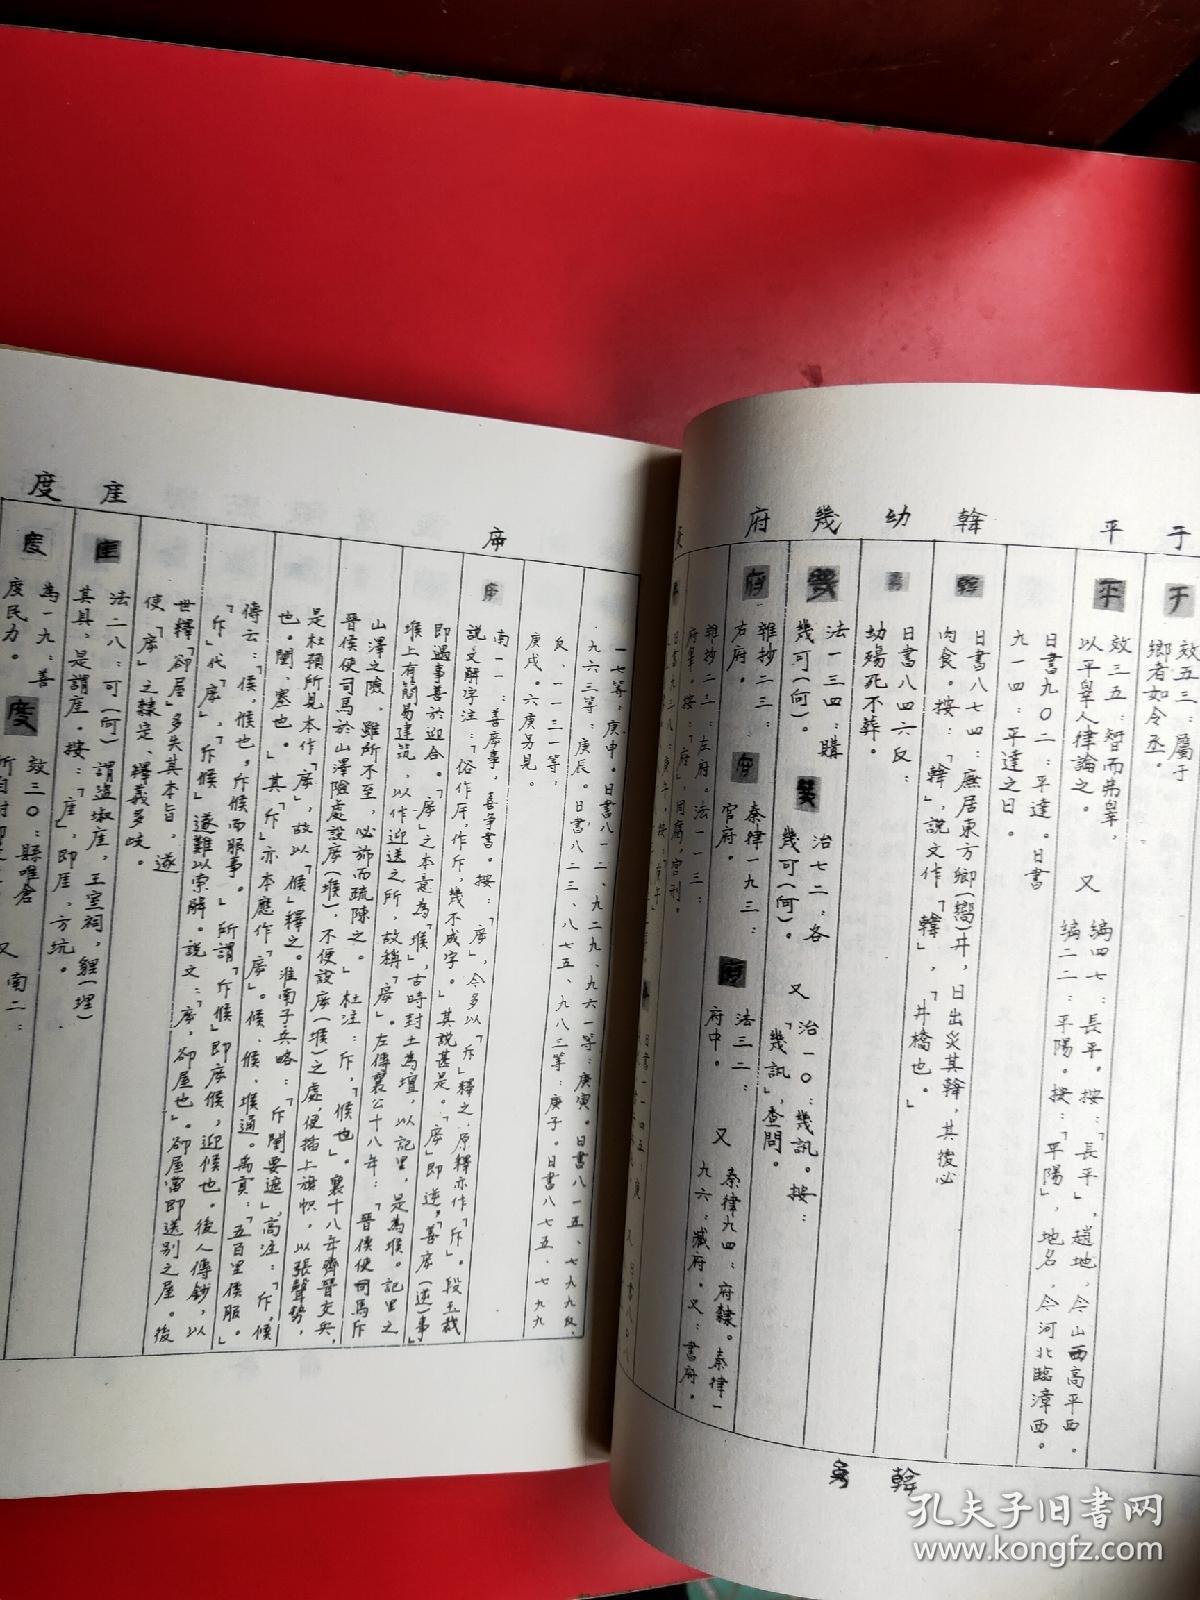 于
平
榦
幼
幾
府
效五三：屬于
鄉者如令丞。
效三五：智而弗辠，
以平辠人律論之。
又
編四七：長平。按：「長平」，趙地，今山西高平西。
編二二：平陽。按：「平陽」，地名，今河北臨漳西。
日書九〇二：平達。日書
九一四：平達之日。
日書八七四：廡居東方鄉(嚮)井，日出炙其榦，其後必
肉食。按：「榦」，說文作「韓」，「井橋也。」
日書八四六反：
幼殤死不葬。
法一三四：購
幾可(何)。
治七二：各
幾可(何)。
又
治一〇：幾訊。按：
「幾訊」，查問。
雜抄二三：
右府。
秦律一九三：
官府。
法三二：
府中。
又
秦律九四：府隸。秦律一
九六：臧府。又：書府。
雜抄二三：左府。法一一三：
府辠。按：「府」，同腐，宮刑。
榦
庌
崖
度
一七等：庚申。日書八一二、九二九、九六一等：庚寅。日書八一五、七九九反、
九六三等：庚辰。日書八二三、八七五、九八三等：庚子。日書八七五、七九九
反、一一三一等：
庚戌。六庚另見
南一一：善庌事，喜爭書。按：「庌」，今多以「斥」釋之，原釋亦作「斥」。段玉裁
說文解字注：「俗作厈，作斥，幾不成字。」其說甚是。「庌」即逆。「善庌(逆)事」
即遇事善於迎合。「庌」之本意為「堠」，古時封土為壇，以記里，是為堠。記里之
堠上有簡易建筑，以作迎送之所，故稱「庌」。左傳襄公十八年：「晉侯使司馬斥
山澤之險，雖所不至，必旆而疏陳之。」杜注：斥，「候也」。襄十八年齊晉交兵，
晉侯使司馬於山澤險處設庌(堠)，不便設庌(堠)之處，便插上旗幟，以張聲勢，
是杜預所見本作「庌」，故以「候」釋之。淮南子兵略：「斥闉要遮」，高注：「斥，候
也。闉，塞也。」其「斥」亦本應作「庌」。候、堠通。禹貢：「五百里侯服。」
傳云：「侯，候也，斥候而服事。」所謂「斥候」即庌候，迎候也。後人傳鈔，以
「斥」代「庌」，「斥候」遂難以索解。說文：「庌，郤屋也」。郤屋當即送別之屋。後
世釋「郤屋」多失其本旨，遂
使「庌」之隸定、釋義多歧。
法二八：可(何)謂盜埱崖，王室祠，貍(埋)
其具，是謂崖。按：「崖」，即厓，方坑。
為一九：善
度民力。
效三〇：縣唯倉
又
南二：
孔夫子旧书网
www.kongfz.com